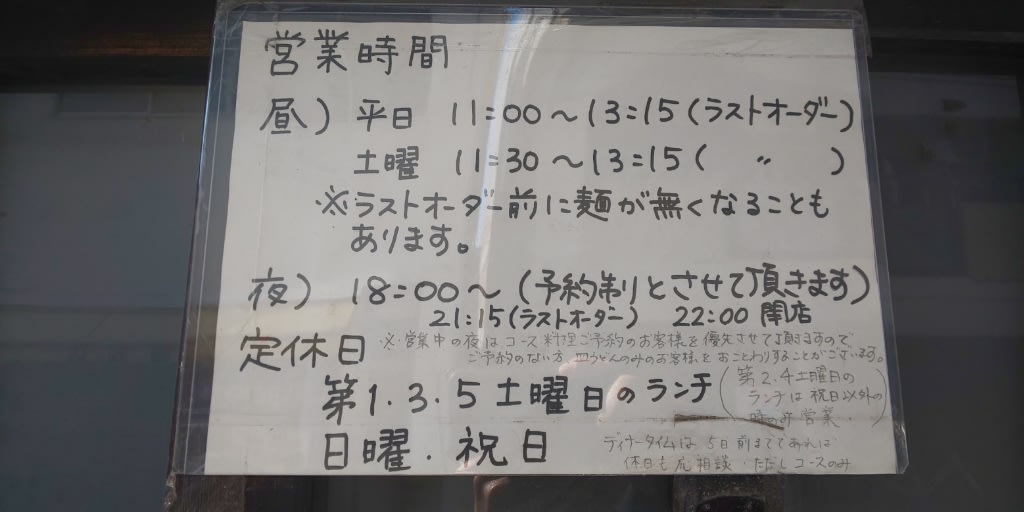 営業時間
昼) 平日 11:00～13:15(ラストオーダー)
土曜 11:30～13:15( 〃 )
※ラストオーダー前に麺が無くなることも
あります。
夜) 18:00～(予約制りとさせて頂きます)
21:15(ラストオーダー) 22:00 閉店
定休日
※営業中の夜はコース料理ご予約のお客様を優先させて頂きますので
ご予約のない方、皿うどんのみのお客様をおことわりすることがございます。
第1.3.5土曜日のランチ
(第2.4土曜日の
ランチは祝日以外の
時のみ営業.)
日曜.祝日
ディナータイムは5日前まででであれば
休日も応相談・ただしコースのみ